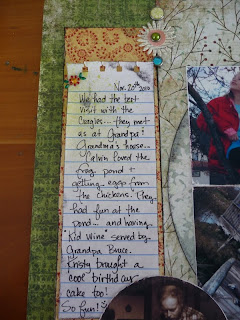 Nov. 20th 2010
We had the best
visit with the
... they met
us at Grandpa &
Grandma's house...
Calvin loved the
frog pond &
getting eggs from
the chickens. They
had fun at the
pond... and having
"Kid Wine" served by
Grandpa Bruce.
Kristy brought a
"cool" birthday
cake too!
So Fun!